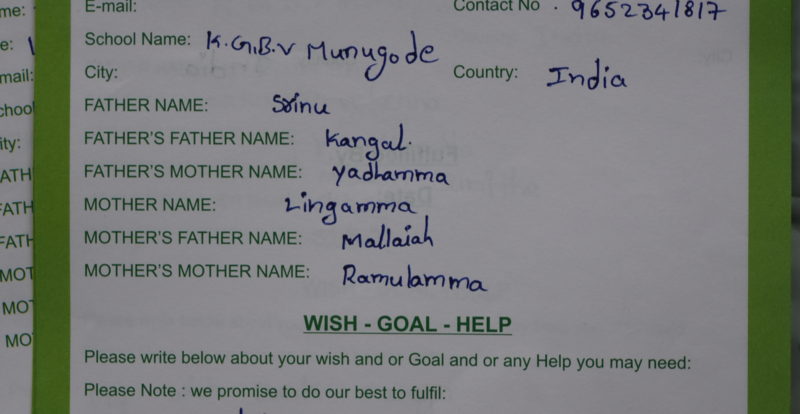 me: E-mail: Contact No . 9652341817
e: School Name: K.G.B.V Munugode
mail: City: Country: India
chool FATHER NAME: Srinu
ity: FATHER'S FATHER NAME: Kangal.
ATH FATHER'S MOTHER NAME: Yadhamma
FATH MOTHER NAME: Lingamma
FATH MOTHER'S FATHER NAME: Mallaiah
MOT MOTHER'S MOTHER NAME: Ramulamma
MO
MO
WISH - GOAL - HELP
Please write below about your wish and or Goal and or any Help you may need:
Please Note : we promise to do our best to fulfil: